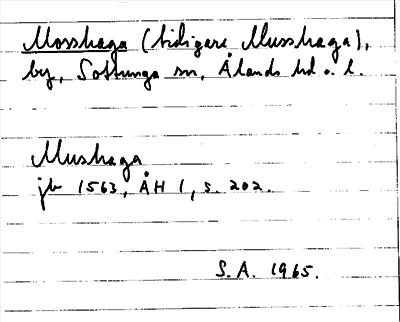 Mosshaga (tidigare Musshaga),
by, Sottunga sn, Ålands hd o. l.
Mushaga
jb 1563, ÅH 1, s. 202.
S.A. 1965.